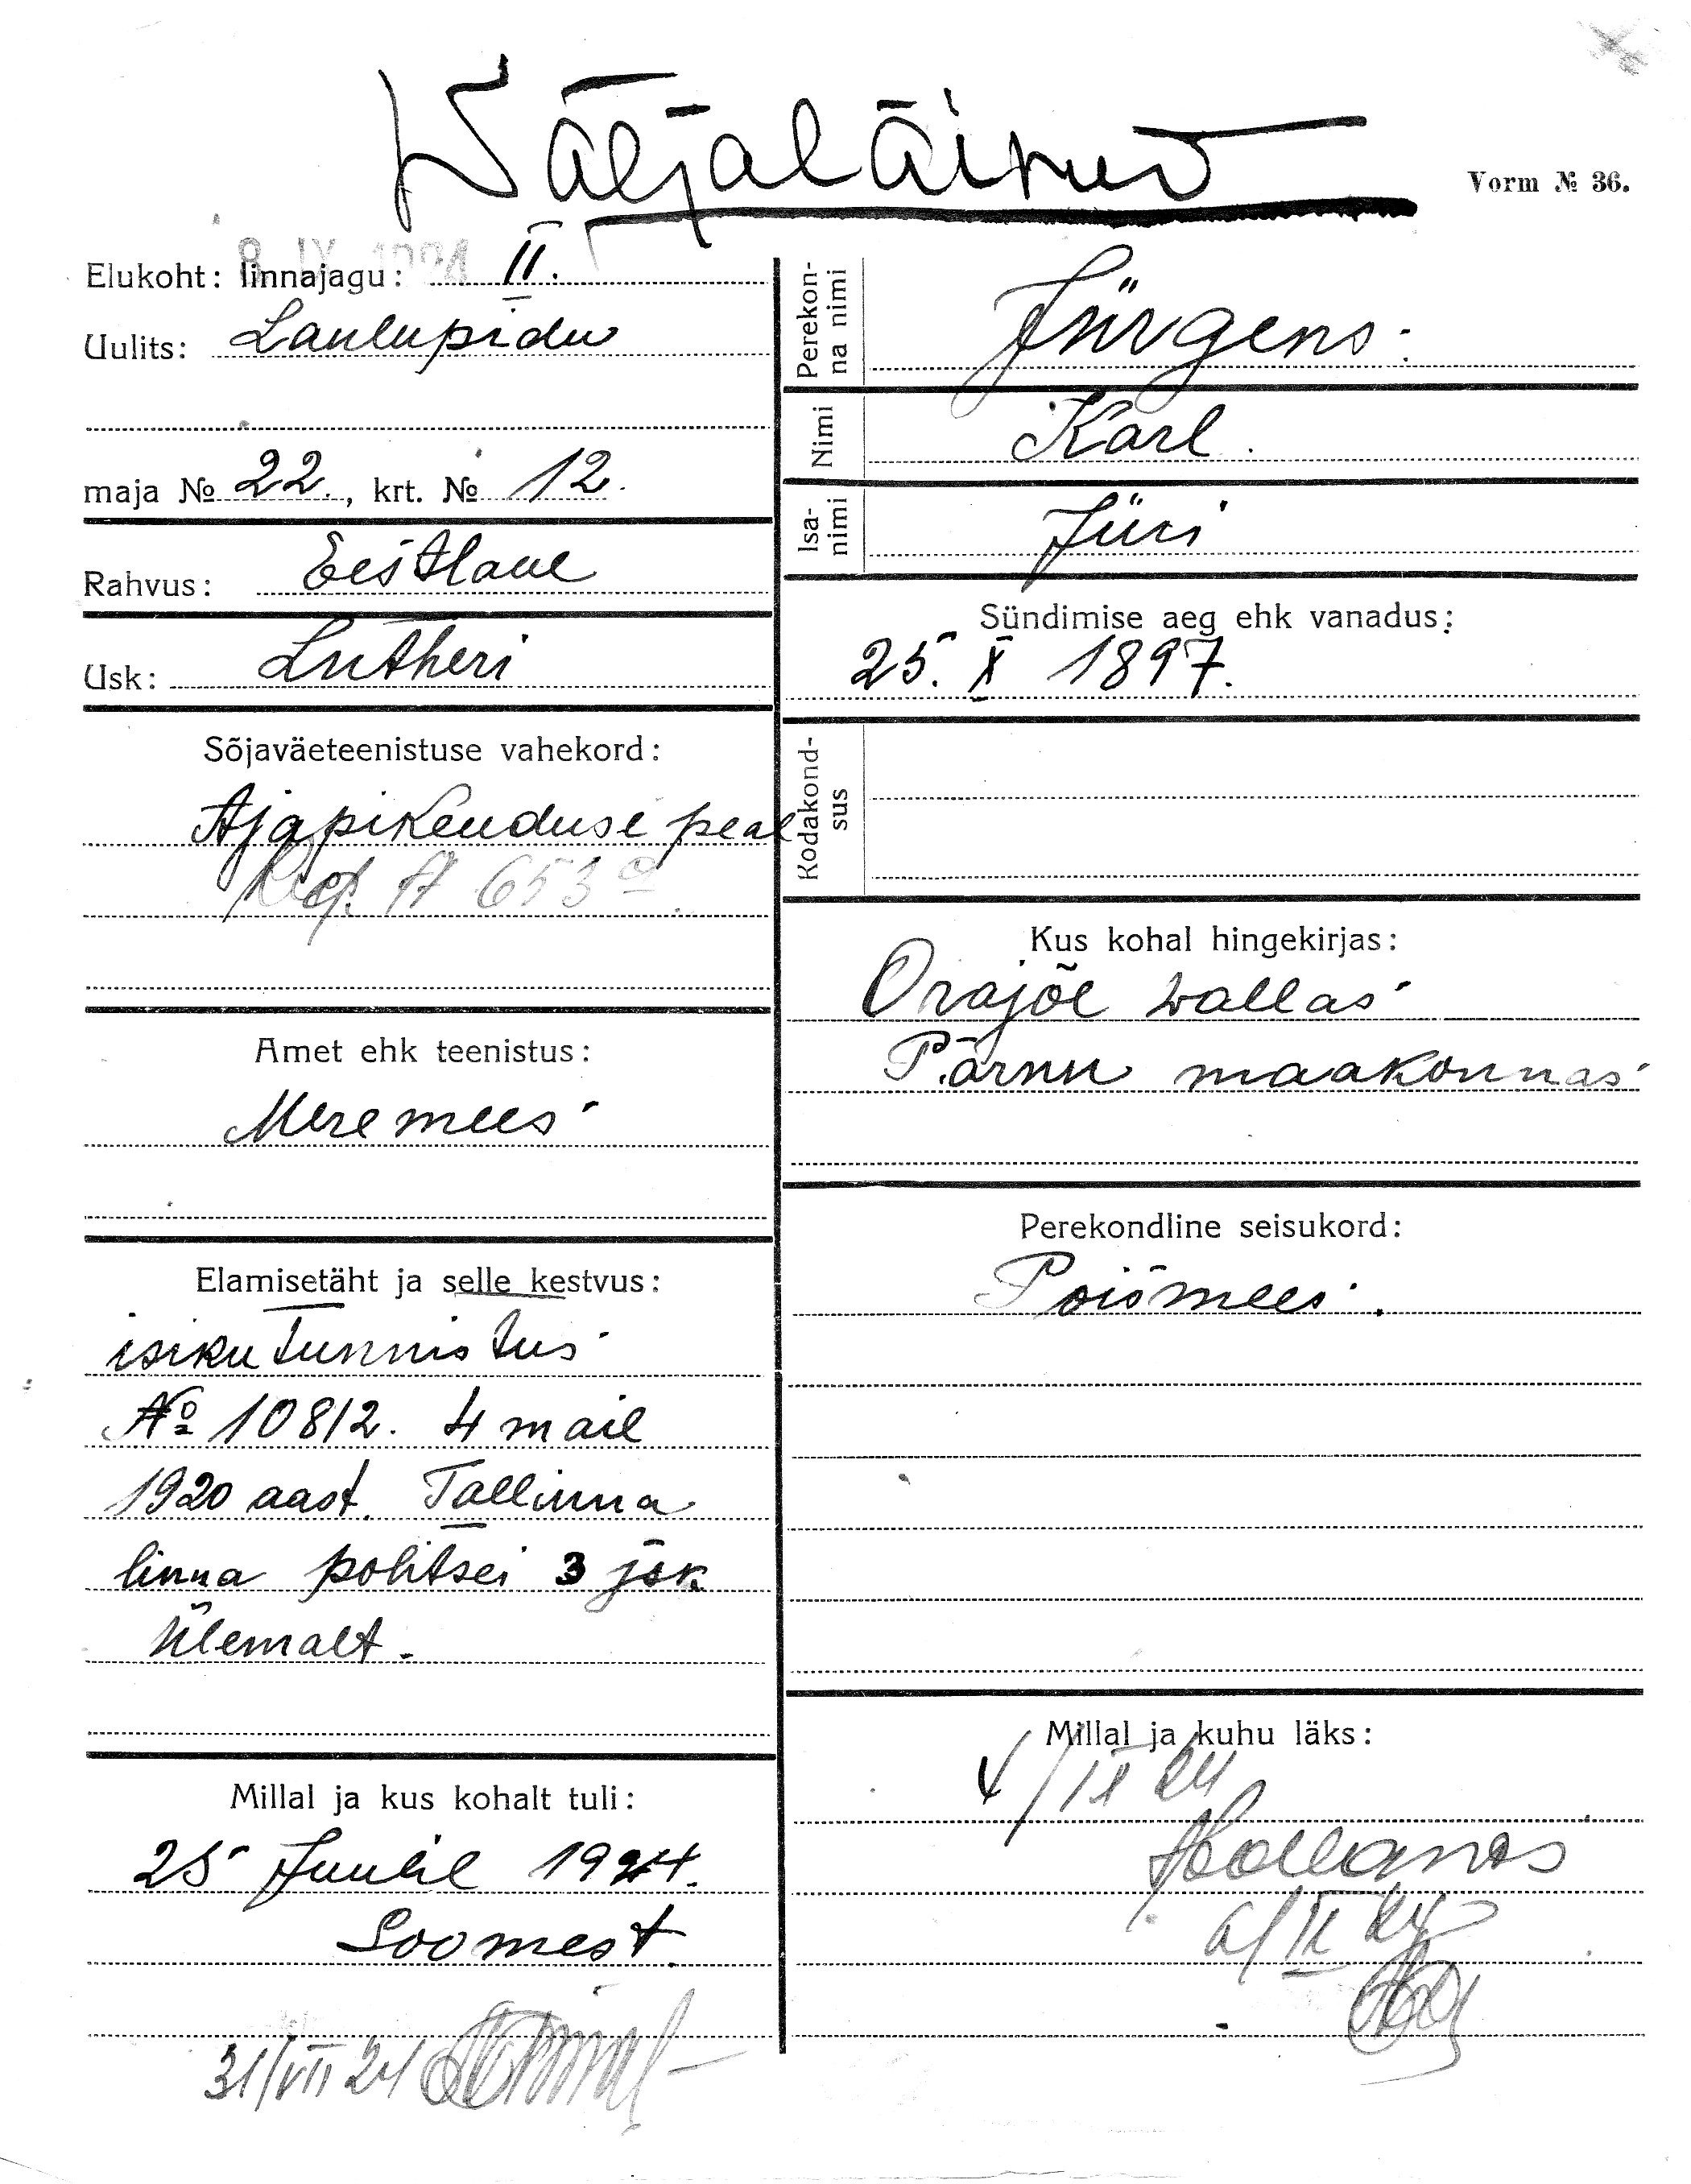 Wäljaläinud
Vorm № 36.
8 IX 1924
Elukoht: linnajagu: II.
Uulits: Laulupidu
maja № 22., krt. № 12.
Rahvus: Eestlane
Usk: Lutheri
Sõjaväeteenistuse vahekord:
Ajapikenduse peal
Reg. A 653
Amet ehk teenistus:
Meremees
Elamisetäht ja selle kestvus:
isiku tunnistus
№ 10812. 4 mail
1920 aast. Tallinna
linna politsei 3 jsk
ülemalt.
Millal ja kus kohalt tuli:
25 Juulil 1924.
Soomest
31/VII 24
Perekon-
na nimi
Jürgens.
Nimi
Karl.
Isa-
nimi
Jüri
Sündimise aeg ehk vanadus:
25. X 1897.
Kodakond-
sus
Kus kohal hingekirjas:
Orajõe wallas
Pärnu maakonnas
Perekondline seisukord:
Poismees.
Millal ja kuhu läks:
4/IX 24